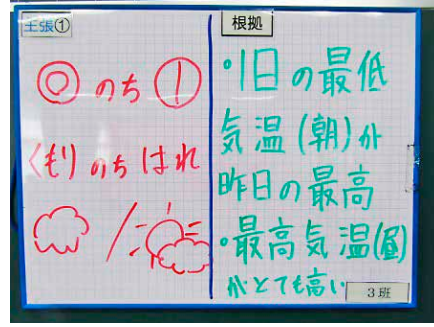 主張①
◎のち①
くもりのちはれ
根拠
•1日の最低
気温(朝)が
昨日の最高
•最高気温(昼)
がとても高い
3班